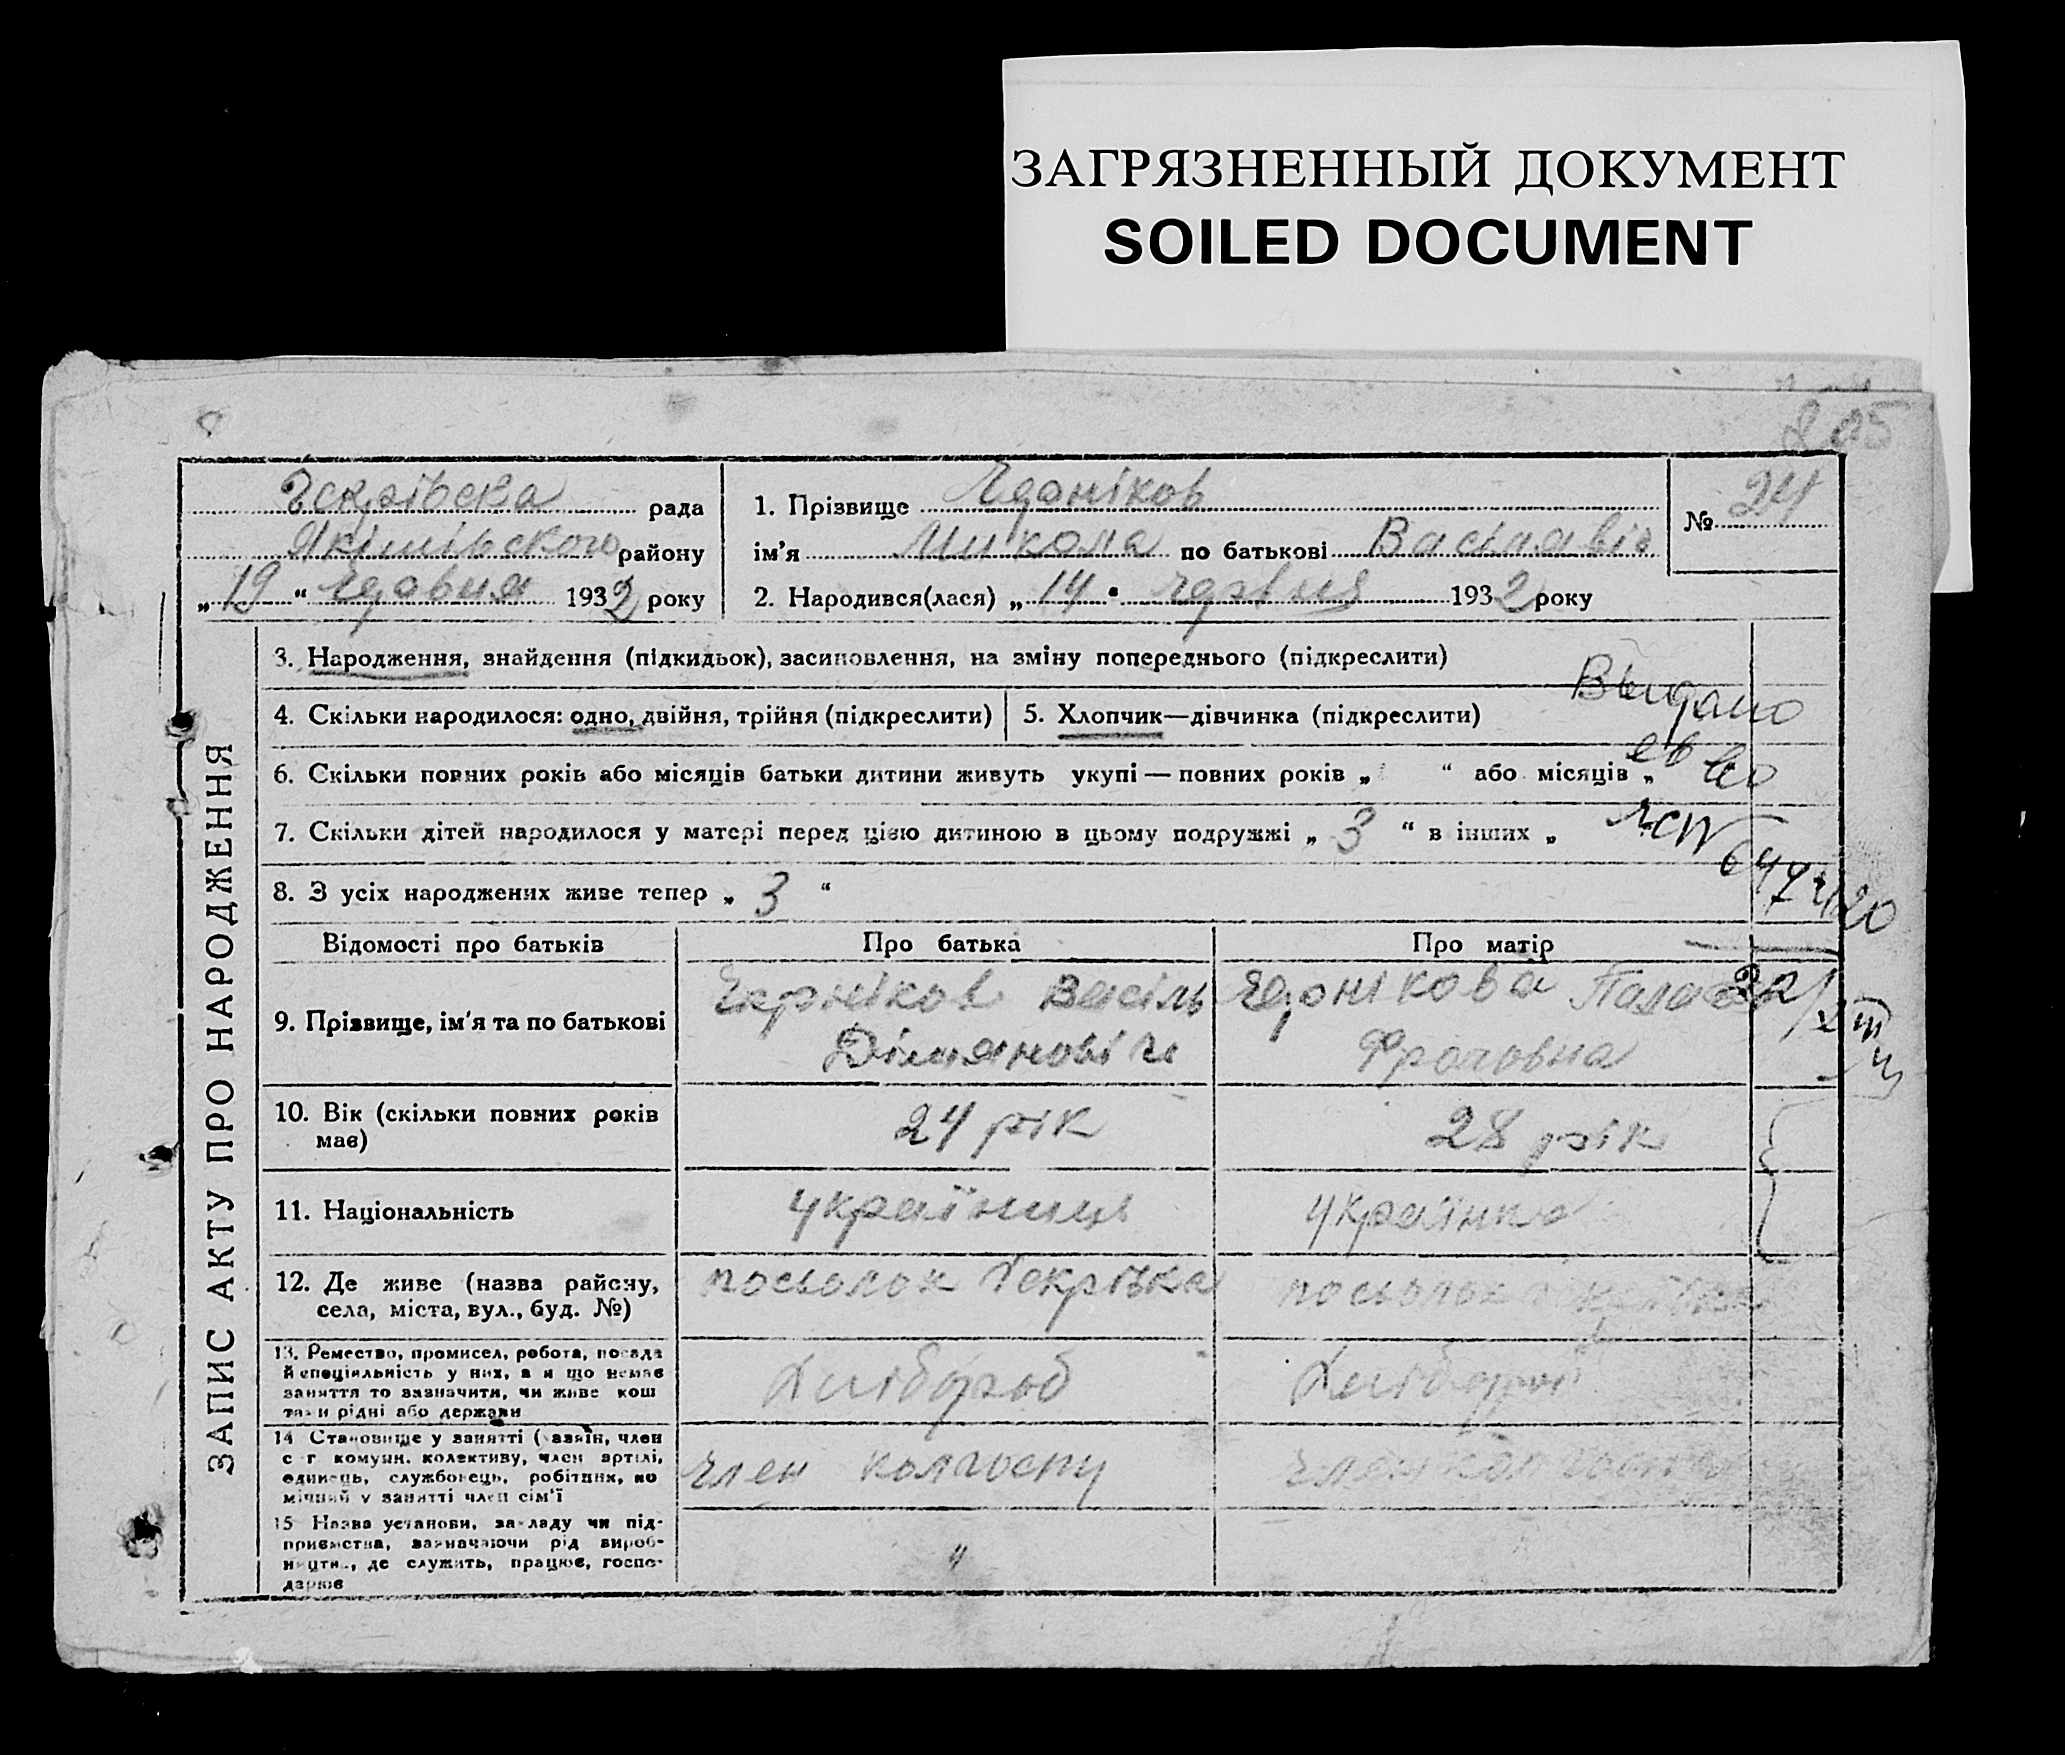 ЗАГРЯЗНЕННЫЙ ДОКУМЕНТ
SOILED DOCUMENT
205
рада
Якімівського району
„19“ Червня 1932 року
1. Прізвище
ім'я Микола по батькові Васьлавіч
2. Народився(лася) „14“ червня 1932 року
№ 24
ЗАПИС АКТУ ПРО НАРОДЖЕННЯ
3. Народження, знайдення (підкидьок), засиновлення, на зміну попереднього (підкреслити)
4. Скільки народилося: одно, двійня, трійня (підкреслити)
5. Хлопчик—дівчинка (підкреслити)
6. Скільки повних років або місяців батьки дитини живуть укупі — повних років „ “ або місяців „
7. Скільки дітей народилося у матері перед цією дитиною в цьому подружжі „ 3 “ в інших „
8. З усіх народжених живе тепер „ 3 “
Выдано
св во
Відомості про батьків
Про батька
Про матір
9. Прізвище, ім'я та по батькові
Васіль
Дімянові ч
10. Вік (скільки повних років
має)
24 рік
28 рік
11. Національність
українець
українка
12. Де живе (назва району,
села, міста, вул., буд. №)
посьолок
посьолок
13. Ремество, промисел, робота, посада
й спеціяльність у них, а я що немає
заняття то зазначити, чи живе кош
тами рідні або держави
Хлібороб
Хлібороб
14 Становище у занятті (хазяїн, член
с г комуни, колективу, член артілі,
одинець, службовець, робітник, по
мічний у занятті член сім'ї
член колгоспу
член колгоспу
15 Назва установи, закладу чи під-
приємства, зазначаючи рід вироб-
ництва, де служить, працює, госпо-
дарює
"